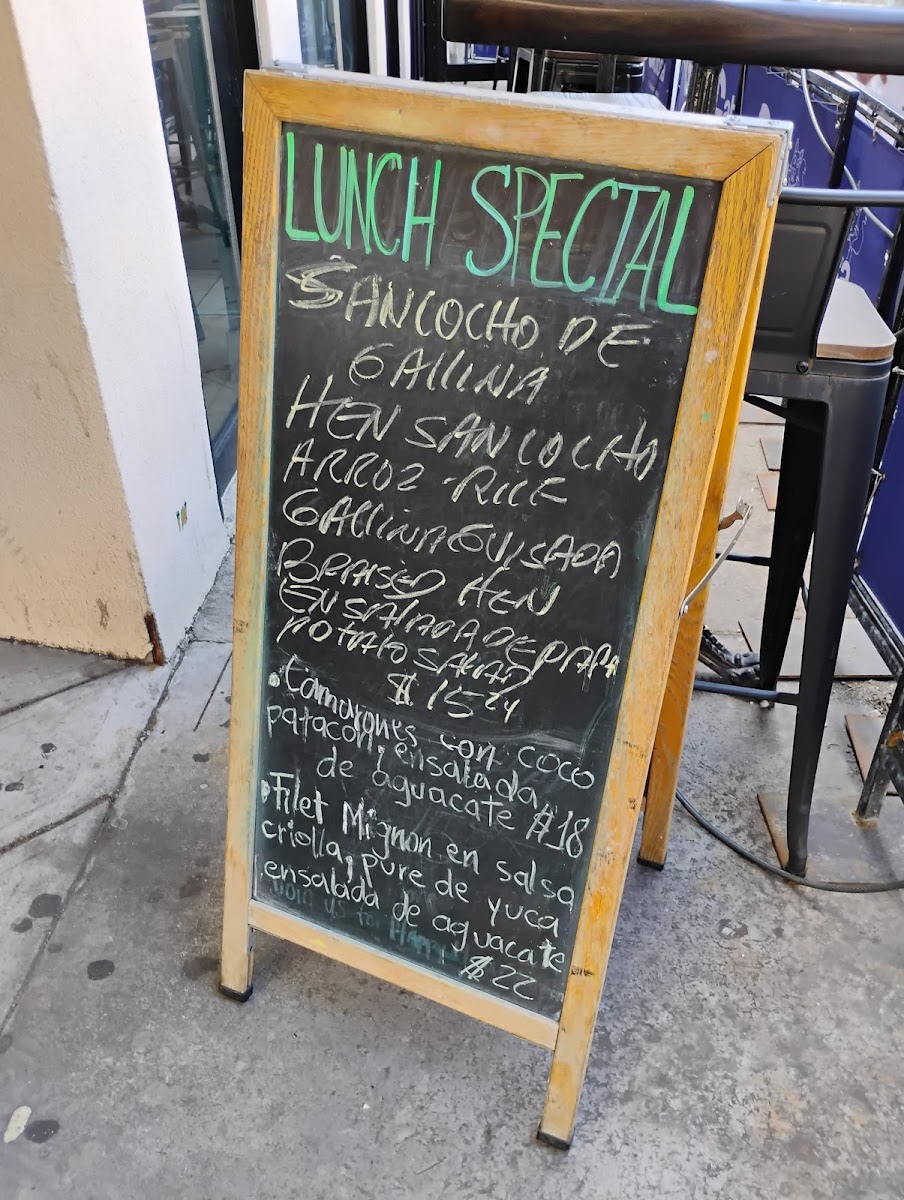 LUNCH SPECIAL
SANCOCHO DE
GALLINA
HEN SANCOCHO
ARROZ - RICE
GALLINA GUISADA
BRAISED HEN
ENSALADA DE PAPA
POTATO SALAD
$ 15
• Camarones con coco
patacon, ensalada
de aguacate $18
• Filet Mignon en salsa
criolla, pure de yuca
ensalada de aguacate
Join us for Happy
$22